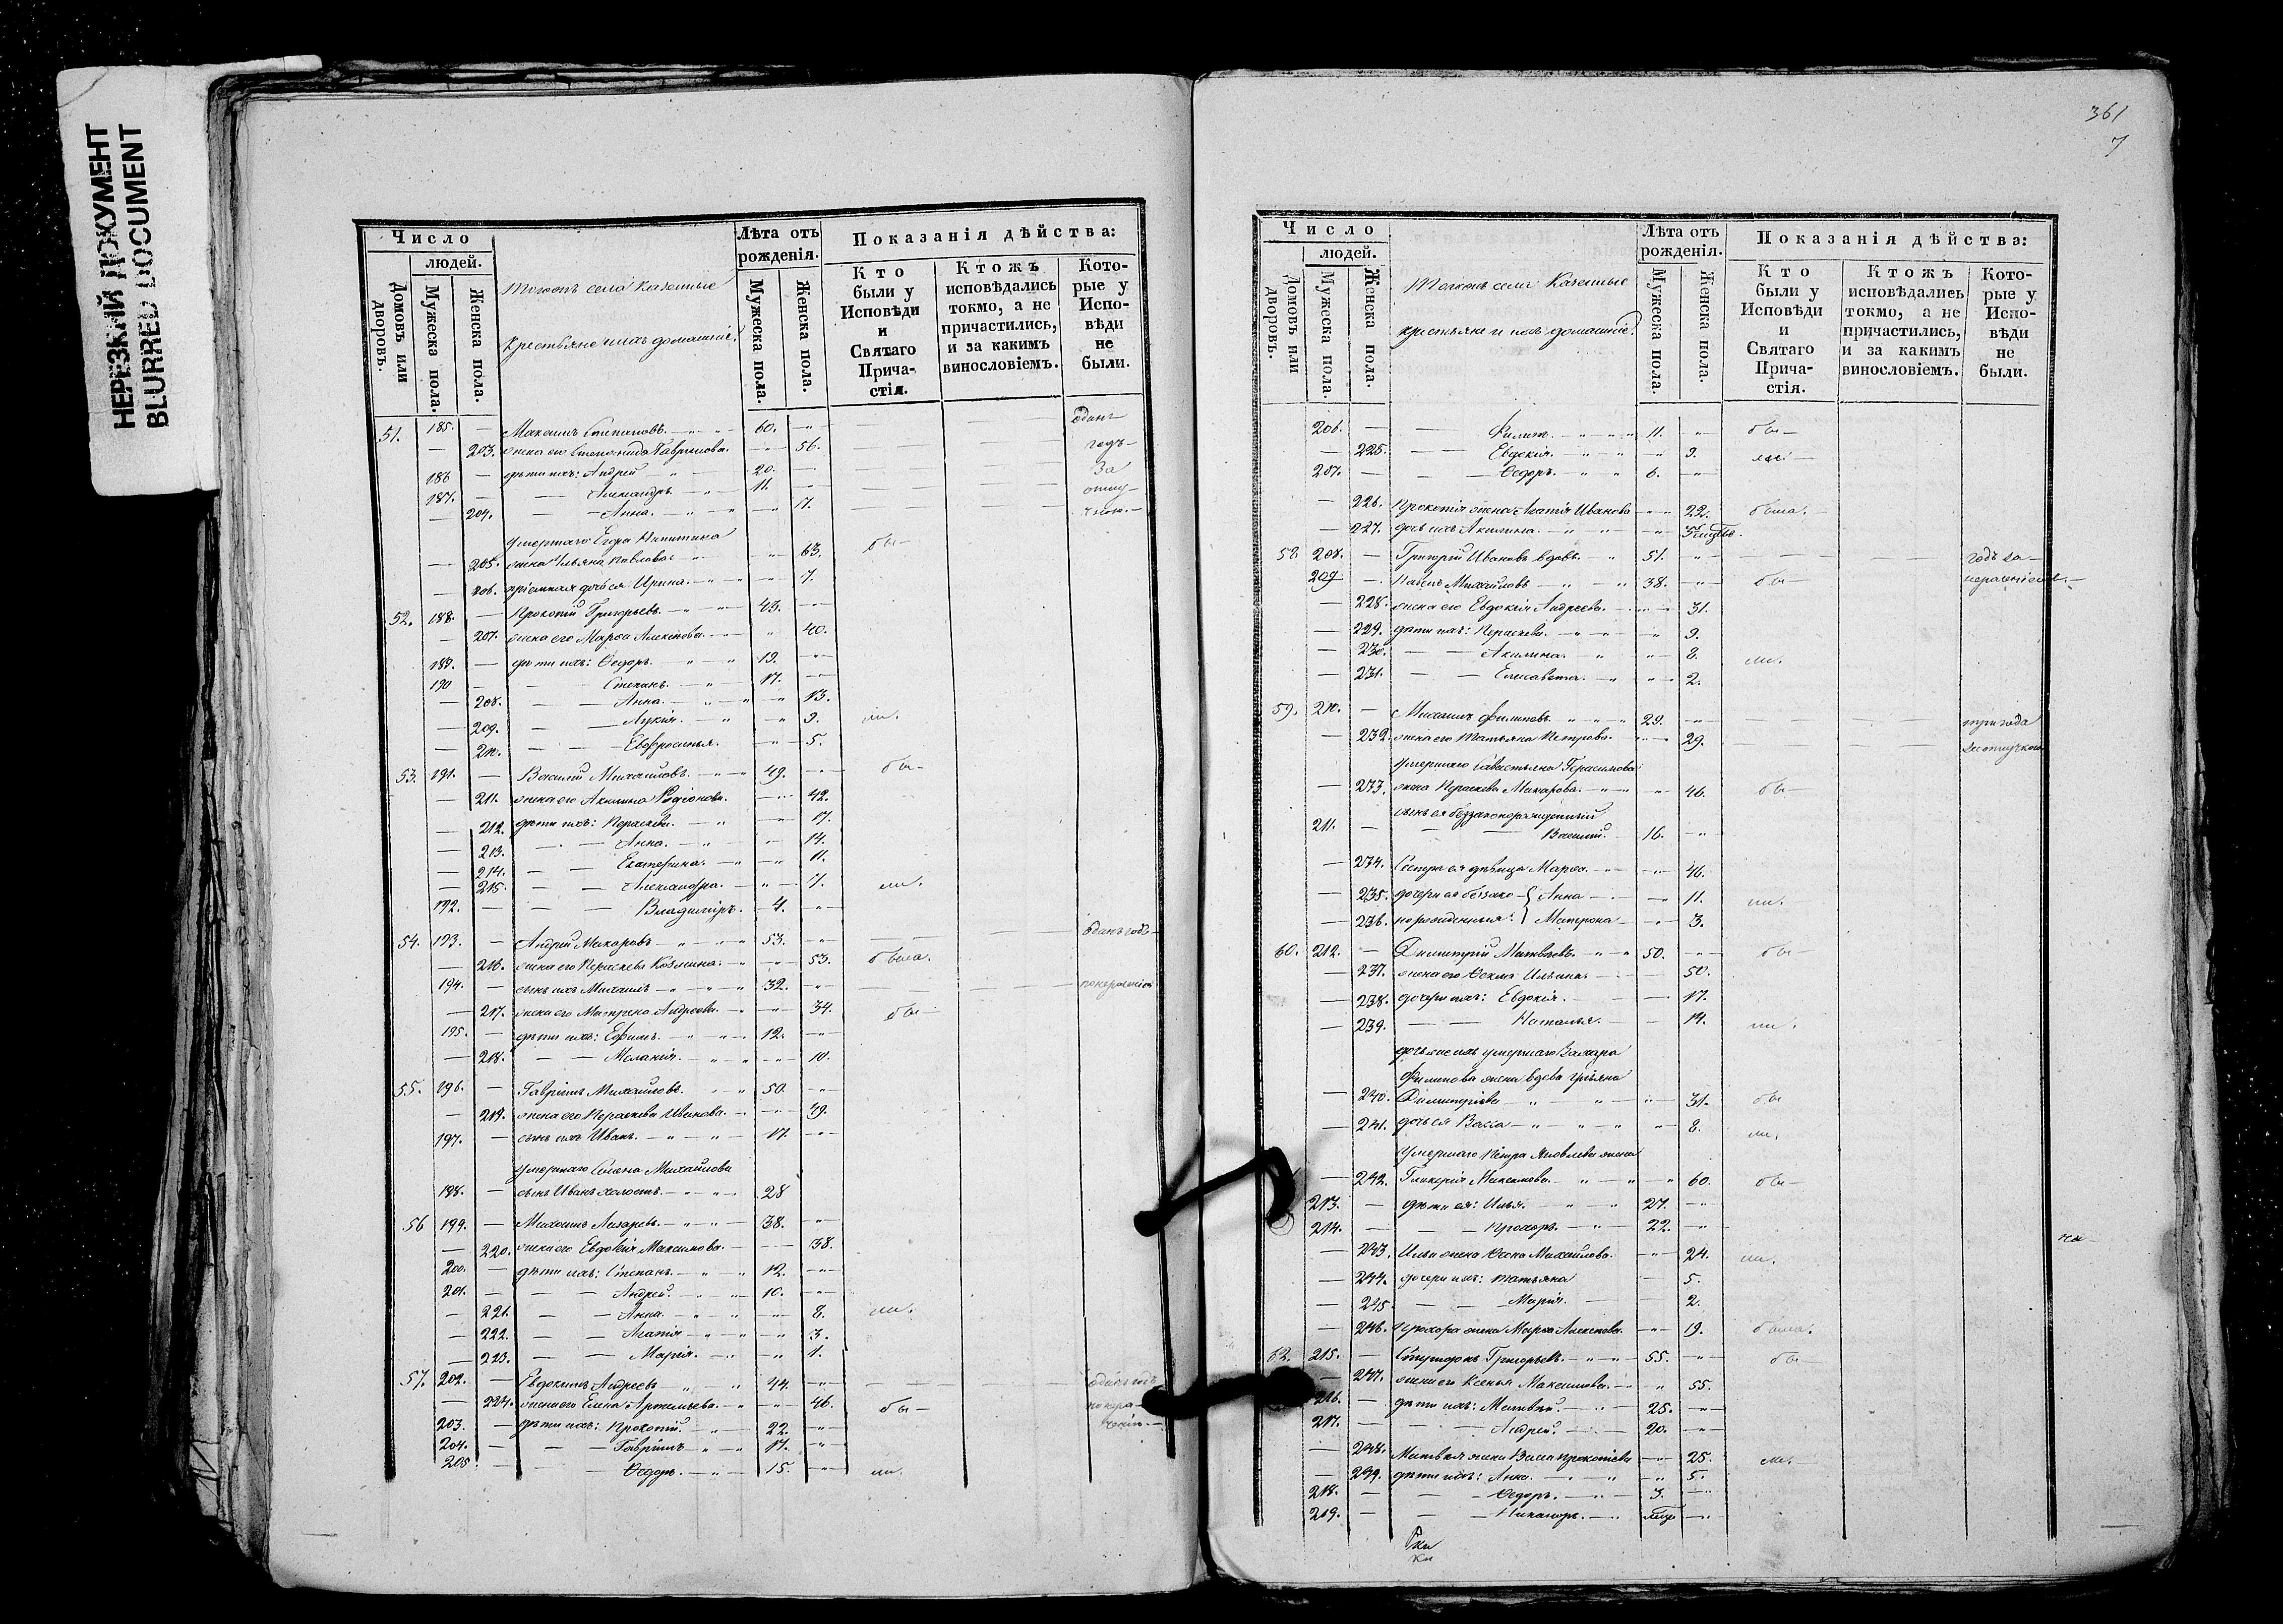 НЕРЕЗКИЙ ДОКУМЕНТ
BLURRED DOCUMENT
Число
людей.
Домовъ или дворовъ.
Мужеска пола.
Женска пола.
Тогожъ села казенные
крестьяне и ихъ домашніе.
Лѣта отъ рожденія.
Мужеска пола.
Женска пола.
Показанія дѣйства:
Кто были у Исповѣди и Святаго Прича-стія.
Ктожъ исповѣдались токмо, а не причастились, и за какимъ винословіемъ.
Кото-рые у Испо-вѣди не были.
51. 185. — Максимъ Степановъ. 60. одинъ
— 203. жена его Степанида Гаврилова. 56. годъ
186 — дѣти ихъ: Андрей 20. За
187. — Александръ. 11. отлу-
— 204. Анна. 7.
умершаго Егора Никитина
— 205. жена Ульяна Павлова 63. бы-
— 206. пріемная дочь ея Ирина. 7.
52. 188. — Прокопій Григорьевъ. 43.
— 207. жена его Марѳа Алексѣева. 40.
189. — дѣти ихъ: Ѳедоръ. 19.
190 — Степанъ. 17.
— 208. Анна. 13.
— 209. Лукія. 9. ли.
— 210. Евфросинья. 5.
53. 191. — Василій Михайловъ. 49. бы-
— 211. жена его Акилина Родіонова. 42.
— 212. дѣти ихъ: Параскева. 17.
— 213. Анна. 14.
— 214. Екатерина. 11.
— 215. Александра. 7. ли.
192. — Владиміръ. 4.
54. 193. — Андрей Макаровъ 53. одинъ годъ
— 216. жена его Параскева Козмина. 53. была.
194. — сынъ ихъ Михаилъ 32.
— 217. жена его Матрена Андреева. 34. бы-
195. — дѣти ихъ: Ефимъ. 12.
— 218. Меланія. 10.
55. 196. — Гавріилъ Михайловъ. 50.
— 219. жена его Параскева Иванова. 49.
197. — сынъ ихъ Иванъ. 17.
умершаго Семена Михайлова
198. — сынъ Иванъ холостъ. 28
56 199. — Михаилъ Лазаревъ. 38.
— 220. жена его Евдокія Максимова. 38.
200. — дѣти ихъ: Степанъ. 12.
201. — Андрей. 10.
— 221. Анна. 8. ли.
— 222. Агапія 3.
— 223. Марія. 1.
57. 202. — Евдокимъ Андреевъ 44. одинъ годъ
— 224. жена его Елена Артемьева. 46. бы-
203. — дѣти ихъ: Прокопій. 22.
204. — Гавріилъ 17.
205. Ѳедоръ. 15. ли.
361
7
Число
людей.
Домовъ или дворовъ.
Мужеска пола.
Женска пола.
Тогожъ села Казенные
крестьяне и ихъ домашніе.
Лѣта отъ рожденія.
Мужеска пола.
Женска пола.
Показанія дѣйства:
Кто были у Исповѣди и Святаго Прича-стія.
Ктожъ исповѣдались токмо, а не причастились, и за какимъ винословіемъ.
Кото-рые у Испо-вѣди не были.
206. — Филипъ. 11. бы-
— 225. Евдокія. 9. ли
207. — Ѳедоръ. 6.
— 226. Прокопія жена Агапія Иванова 22. была.
— 227. дочь ихъ Акилина.
58. 208. — Григорій Ивановъ вдовъ. 51. годъ
209 — Павелъ Михайловъ 38. бы-
— 228. жена его Евдокія Андреева. 31.
— 229. дѣти ихъ: Параскева. 9.
— 230. Акилина. 8.
— 231. Елисавета. 2. ли.
59. 210. — Михаилъ Филиповъ 29. три года
— 232. жена его Татьяна Петрова. 29.
умершаго Савастьяна Герасимова
— 273. жена Параскева Макарова. 46. бы-
сынъ ея беззаконорожденный
211. — Василій. 16.
— 274. Сестра ея дѣвица Марѳа. 46.
— 235. дочери ея беззако- Анна 11. ли.
— 236. норожденныя: Матрона 3.
60. 212. — Димитрій Матвѣевъ. 50. бы-
— 237. жена его Ѳекла Ильина. 50.
— 238. дочери ихъ: Евдокія. 17.
— 239. Наталья. 14. ли.
дочь же ихъ умершаго Захара
Филипова жена вдова
— 240. Димитріева 31. бы
— 241. дочь ея Васса 8. ли.
Умершаго Петра Яковлева жена
— 242. Гликерія Максимова. 60. бы-
213. — дѣти ея: Илья. 27.
214. — Прохоръ. 22.
— 243. Ильи жена Михайлова. 24. ли.
— 244. дочери ихъ: Татьяна 5.
— 245. Марія. 2.
— 246. Прохора жена Марѳа Алексѣева. 19. была.
62. 215. — Спиридонъ Григорьевъ. 55. бы-
— 247. жена его Ксенья Максимова. 55.
216. — дѣти ихъ: Матвѣй. 25.
217. — Андрей. 20.
— 248. Матвѣя жена Васса Прокопіева 25. ли.
— 249. дѣти ихъ: Анна. 5.
218. — Ѳедоръ. 3.
219. — Никаноръ.